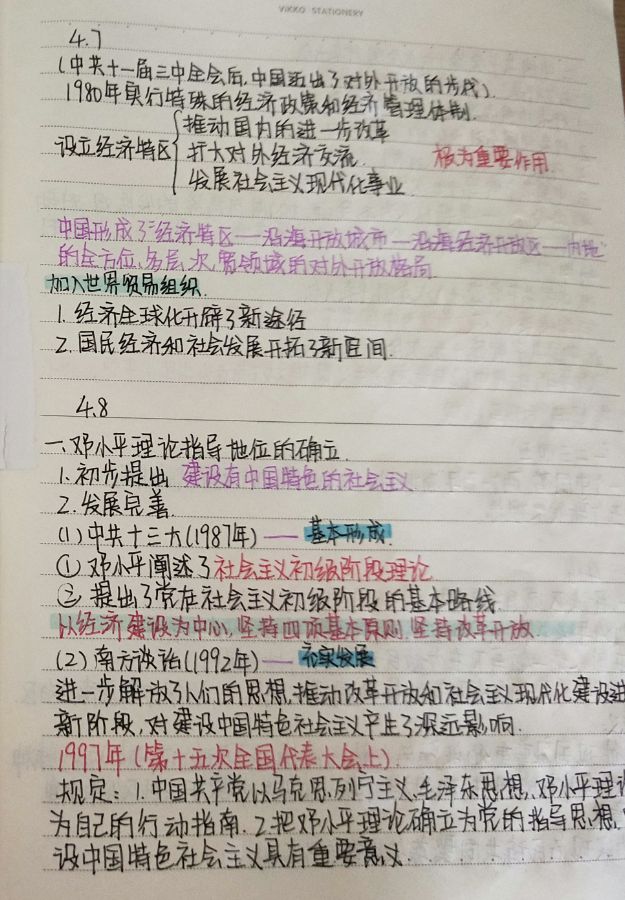 VIKKO STATIONERY
4.7
(中共十一届三中全会后,中国迈出了对外开放的步伐).
1980年实行特殊的经济政策和经济管理体制.
推动国内的进一步改革
设立经济特区 扩大对外经济交流 极为重要作用
发展社会主义现代化事业
中国形成了“经济特区—沿海开放城市—沿海经济开放区—内地”
的全方位,多层次,宽领域的对外开放格局
加入世界贸易组织.
1.经济全球化开辟了新途径
2.国民经济和社会发展开拓了新空间.
4.8
一.邓小平理论指导地位的确立
1.初步提出 建设有中国特色的社会主义
2.发展完善
(1)中共十三大(1987年)—基本形成.
①邓小平阐述了社会主义初级阶段理论
②提出了党在社会主义初级阶段的基本路线
以经济建设为中心,坚持四项基本原则,坚持改革开放
(2)南方谈话(1992年)—发展
进一步解放了人们的思想,推动改革开放和社会主义现代化建设进
新阶段,对建设中国特色社会主义产生了深远影响.
1997年(第十五次全国代表大会上)
规定:1.中国共产党以马克思,列宁主义,毛泽东思想,邓小平理论
为自己的行动指南.2.把邓小平理论确立为党的指导思想,
设中国特色社会主义具有重要意义.